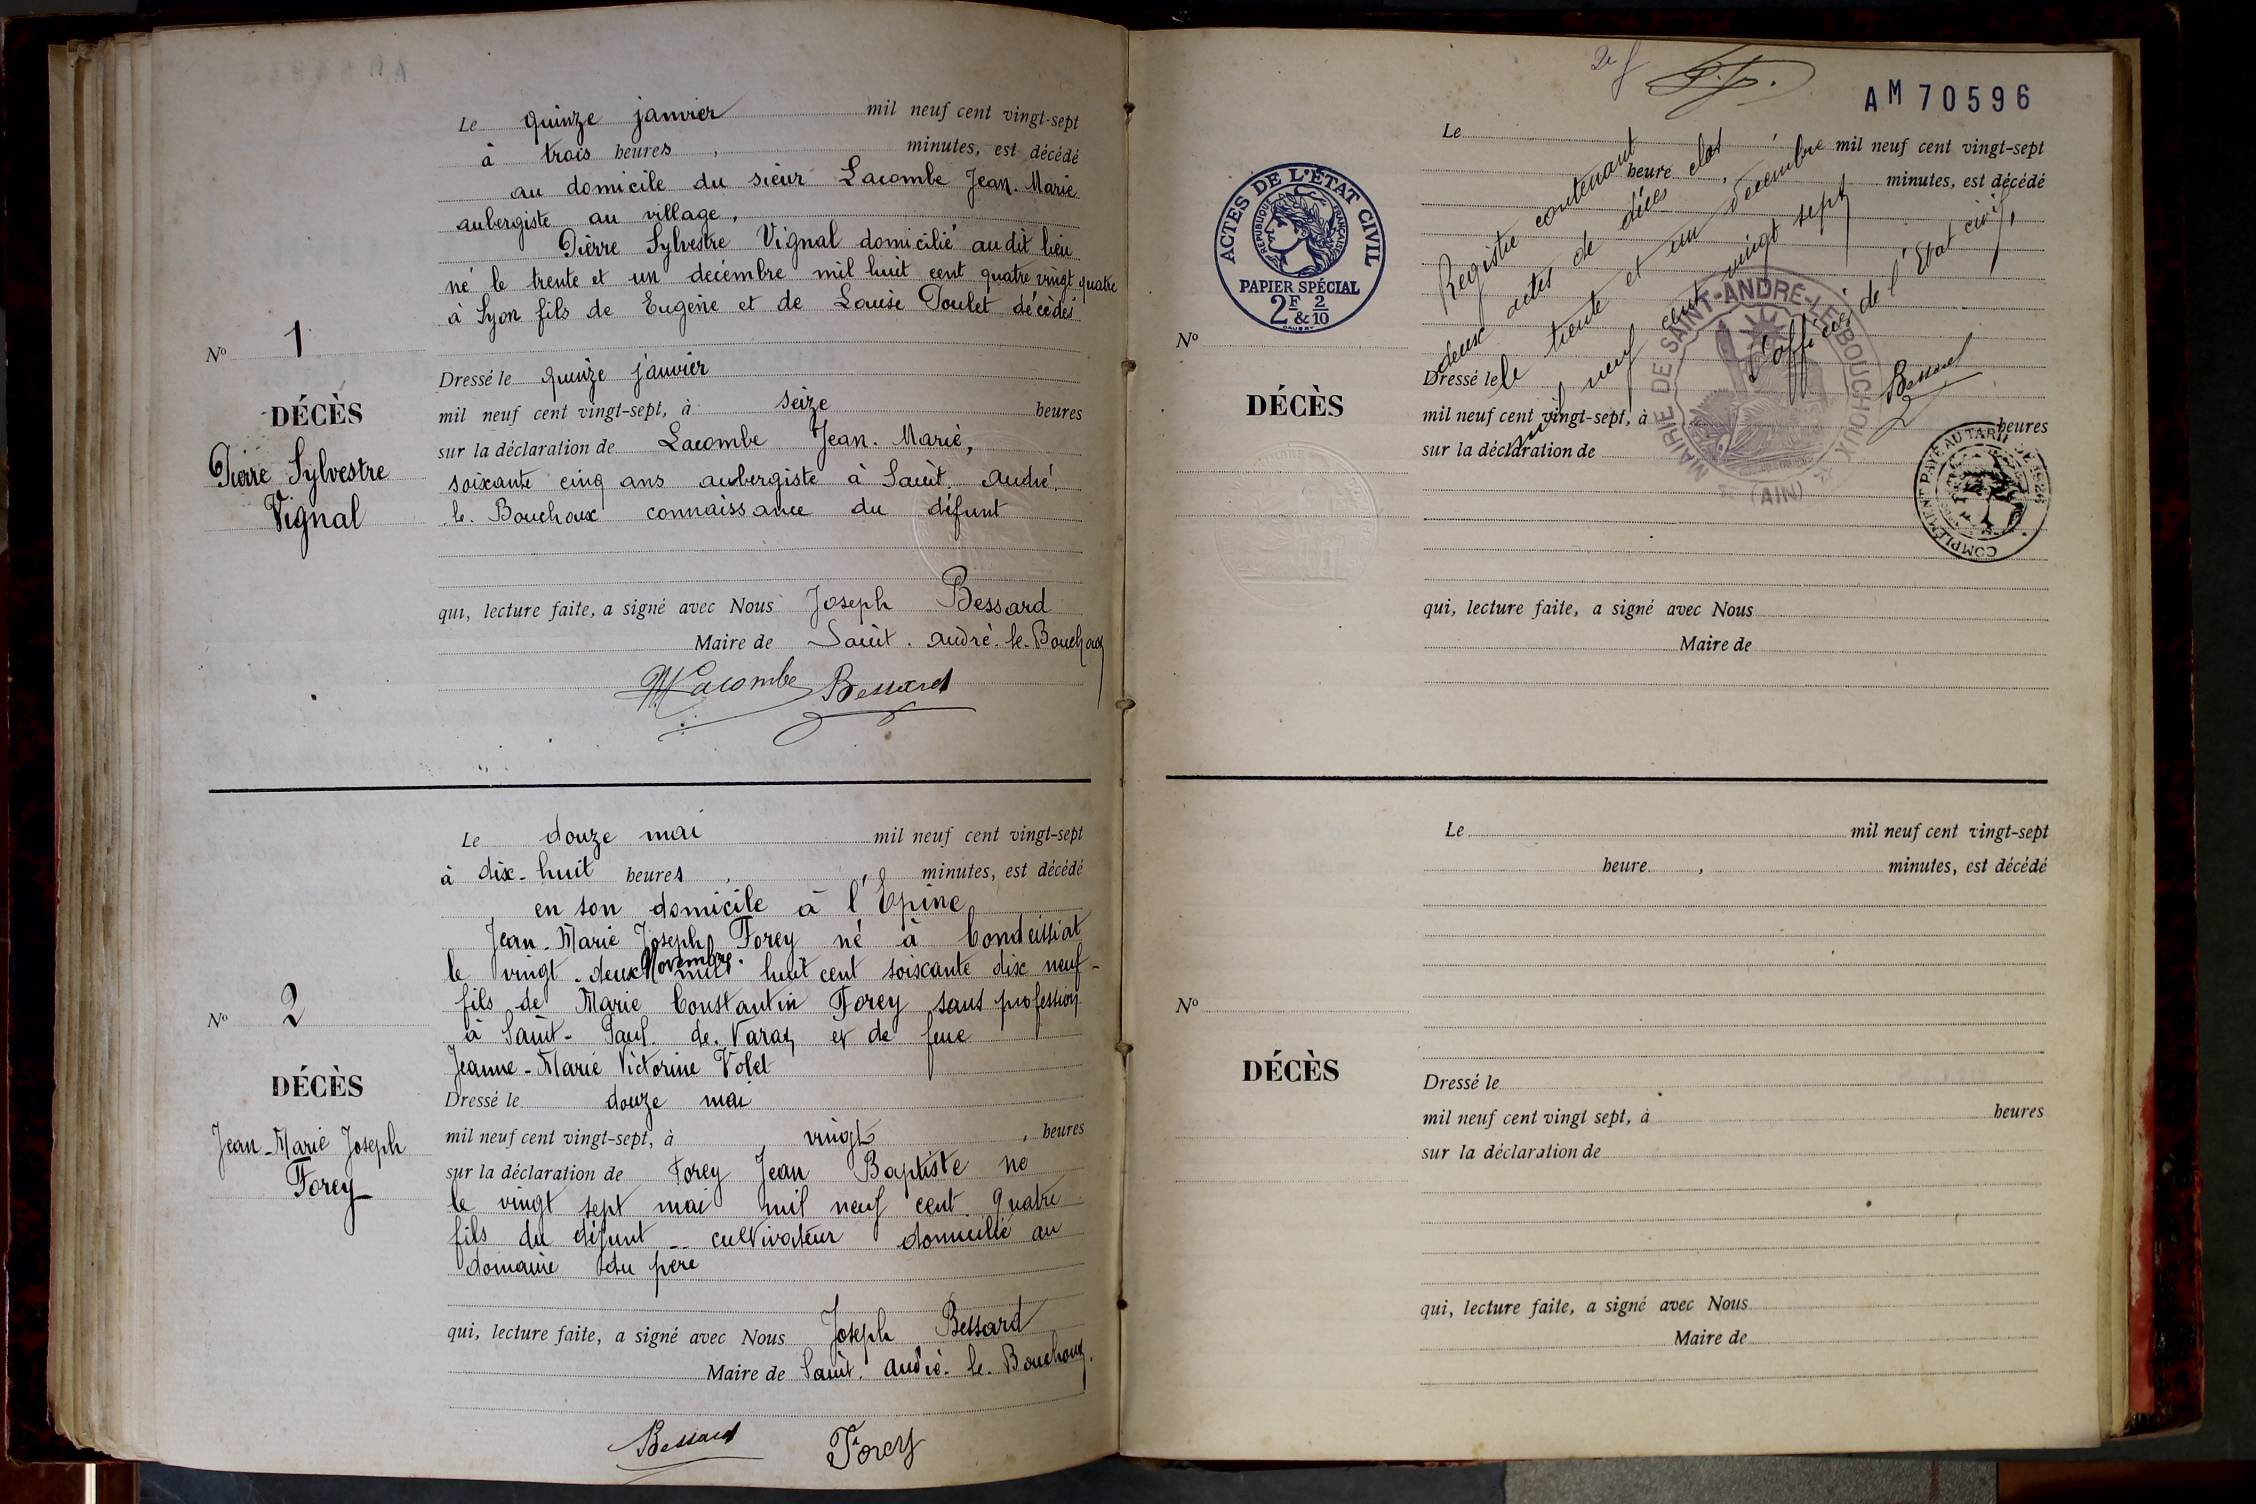 Le quinze janvier mil neuf cent vingt-sept
à trois heures , minutes, est décédé
au domicile du sieur Lacombe Jean. Marie
aubergiste au village,
Pierre Sylvestre Vignal domicilié audit lieu
né le trente et un decémbre mil huit cent quatre vingt quatre
à Lyon fils de Eugène et de Louise Poulet décèdés
No 1
DÉCÈS
Pierre Sylvestre
Vignal
Dressé le quinze janvier
mil neuf cent vingt-sept, à seize heures
sur la déclaration de Lacombe Jean. Marie,
soixante cinq ans aubergiste à Saint. André.
le. Bouchoux connaissance du défunt
qui, lecture faite, a signé avec Nous Joseph Bessard
Maire de Saint. André. le. Bouchoux
Lacombe Bessard
Le douze mai mil neuf cent vingt-sept
à dix-huit heures , minutes, est décédé
en son domicile à l'Epine
Jean-Marie Joseph Forey né à Condeissiat
le vingt-deux Novembre. mil huit cent soixante dix neuf-
fils de Marie Constantin Forey sans profession
à Saint-Paul. de. Varax et de feue
Jeanne-Marie Victorine Volet
No 2
DÉCÈS
Jean-Marie Joseph
Forey
Dressé le douze mai
mil neuf cent vingt-sept, à vingt , heures
sur la déclaration de Forey Jean Baptiste né
le vingt sept mai mil neuf cent quatre
fils du défunt -- cultivateur domicilié au
domaine du père
qui, lecture faite, a signé avec Nous Joseph Bessard
Maire de Saint. André. le. Bouchoux.
Bessard Forey
AM 70596
ACTES DE L'ÉTAT CIVIL
RÉPUBLIQUE FRANÇAISE
PAPIER SPÉCIAL
2F & 2/10
Le mil neuf cent vingt-sept
heure , minutes, est décédé
Registre contenant
deux actes de décès clos
le trente et un décembre
mil neuf cent vingt sept
L'officier de l'Etat civil,
Bessard
MAIRIE DE SAINT-ANDRÉ-LE-BOUCHOUX
(AIN)
No
DÉCÈS
Dressé le
mil neuf cent vingt-sept, à heures
sur la déclaration de
COMPLÉMENT PAYÉ AU TARIF DE 1926
qui, lecture faite, a signé avec Nous
Maire de
Le mil neuf cent vingt-sept
heure , minutes, est décédé
No
DÉCÈS
Dressé le
mil neuf cent vingt sept, à heures
sur la déclaration de
qui, lecture faite, a signé avec Nous
Maire de